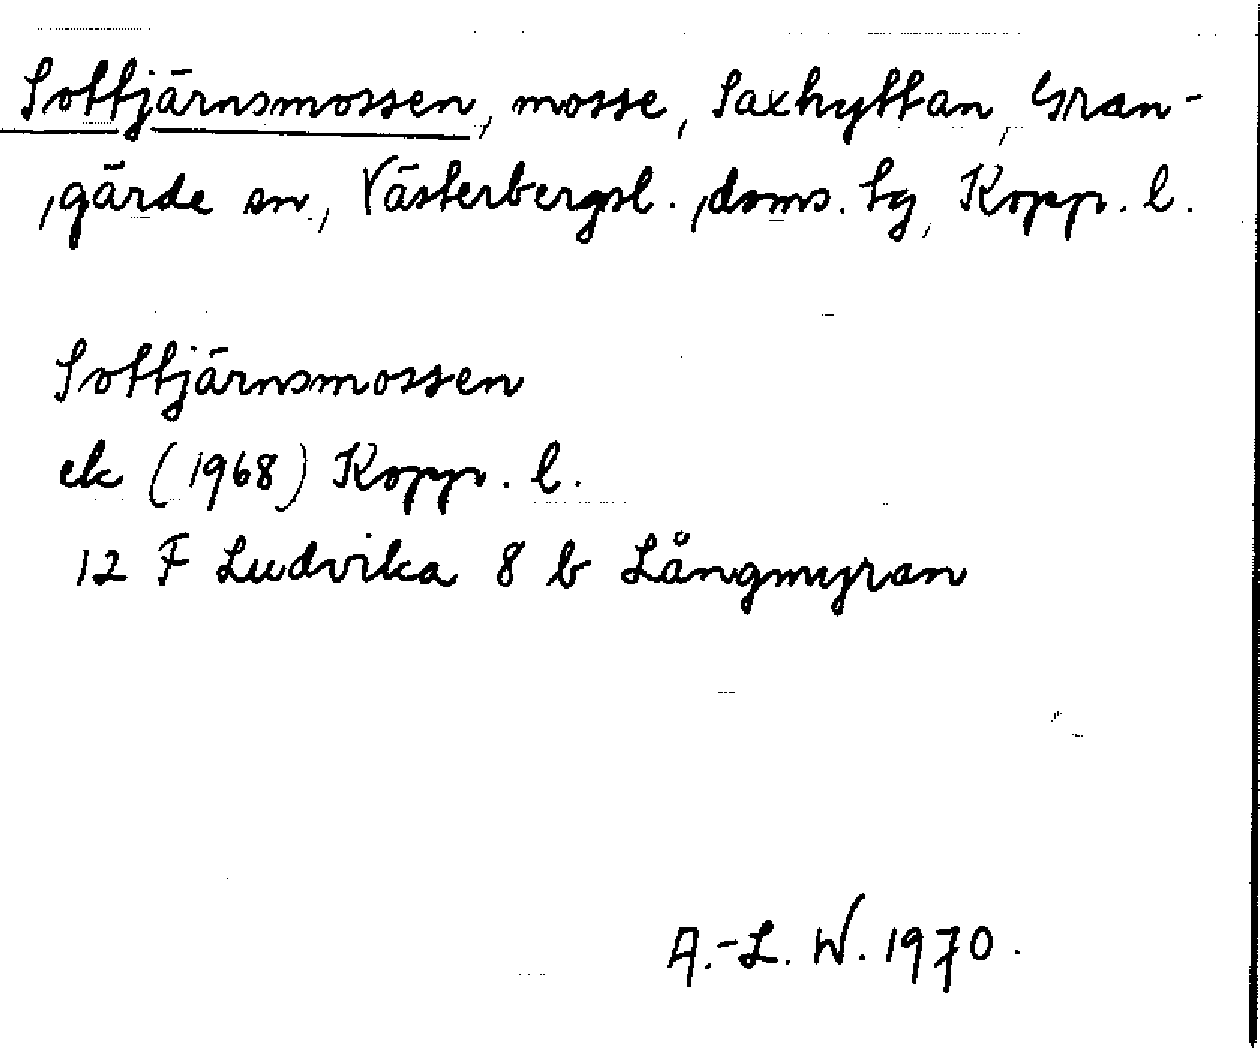 Sottjärnsmossen, mosse, Saxhyttan, Gran-
gärde sn, Västerbergsl. doms. tg, Kopp. l.
Sottjärnsmossen
ek (1968) Kopp. l.
12 F Ludvika 8 b Långmyran
A.-L. W. 1970.